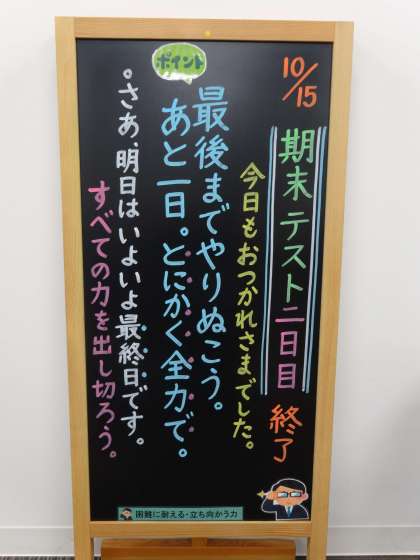 10/15
期末テスト二日目 終了
今日もおつかれさまでした。
ポイント
最後までやりぬこう。
あと一日。とにかく全力で。
。さあ、明日はいよいよ最終日です。
すべての力を出し切ろう。
困難に耐える・立ち向かう力